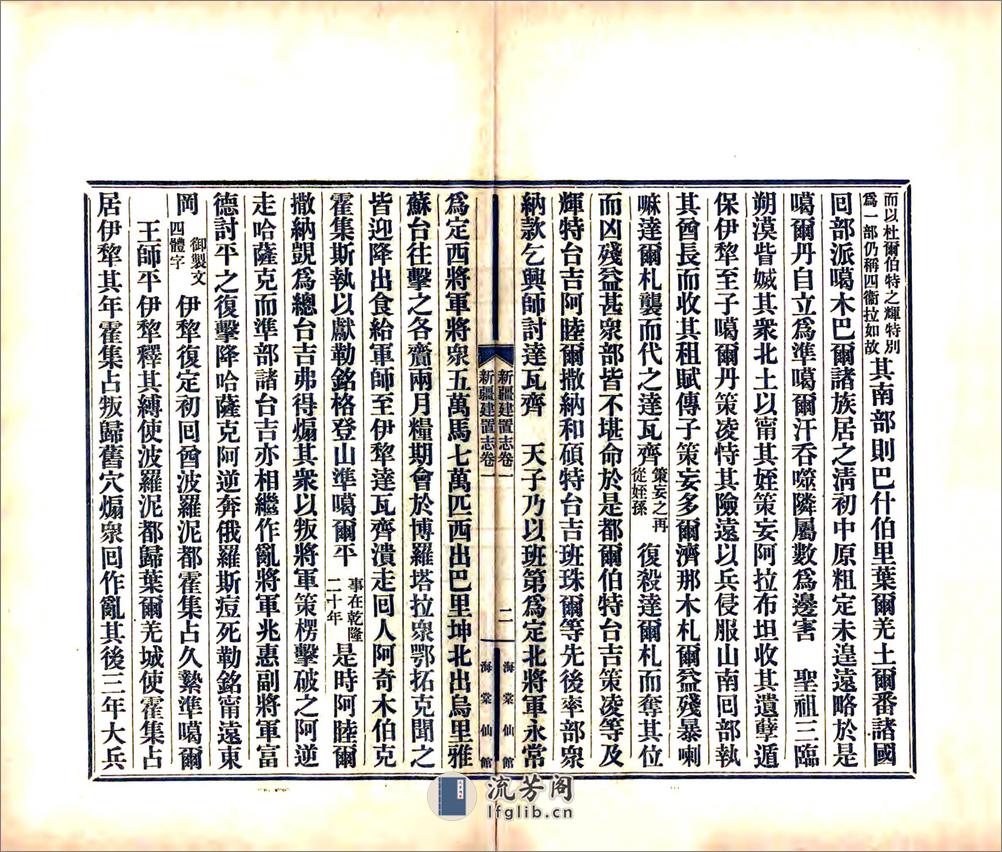 而以杜爾伯特之輝特別
爲一部仍稱四衞拉如故
其南部則巴什伯里葉爾羌土爾番諸國
回部派噶木巴爾諸族居之淸初中原粗定未遑遠略於是
噶爾丹自立爲準噶爾汗吞噬隣屬數爲邊害　聖祖三臨
朔漠眥㓕其衆北土以甯其姪策妄阿拉布坦收其遺孽遁
保伊犂至子噶爾丹策凌恃其險遠以兵侵服山南回部執
其酋長而收其租賦傳子策妄多爾濟那木札爾益殘暴喇
嘛達爾札襲而代之達瓦齊
策妄之再
從姪孫
復殺達爾札而奪其位
而凶殘益甚衆部皆不堪命於是都爾伯特台吉策凌等及
輝特台吉阿睦爾撒納和碩特台吉班珠爾等先後率部衆
納款乞興師討達瓦齊　天子乃以班第爲定北將軍永常
新疆建置志卷一
二
海棠仙館
新疆建置志卷一
海棠仙館
爲定西將軍將衆五萬馬七萬匹西出巴里坤北出烏里雅
蘇台往擊之各齎兩月糧期會於博羅塔拉衆鄂拓克聞之
皆迎降出食給軍師至伊犂達瓦齊潰走回人阿奇木伯克
霍集斯執以獻勒銘格登山準噶爾平
事在乾隆
二十年
是時阿睦爾
撒納覬爲總台吉弗得煽其衆以叛將軍策楞擊破之阿逆
走哈薩克而準部諸台吉亦相繼作亂將軍兆惠副將軍富
德討平之復擊降哈薩克阿逆奔俄羅斯痘死勒銘甯遠東
岡
御製文
四體字
伊犂復定初回酋波羅泥都霍集占久縶準噶爾
王師平伊犂釋其縛使波羅泥都歸葉爾羌城使霍集占
居伊犂其年霍集占叛歸舊穴煽衆回作亂其後三年大兵
流芳阁
lfglib.cn